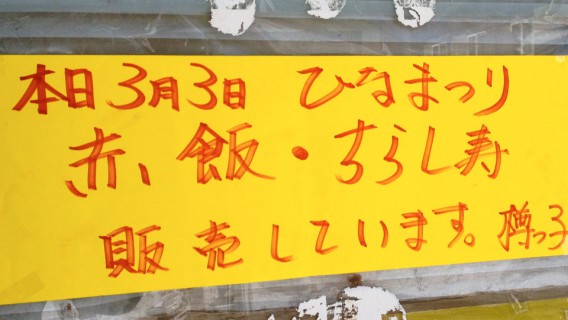 本日3月3日 ひなまつり
赤飯・ちらし寿
販売しています。樽っ子